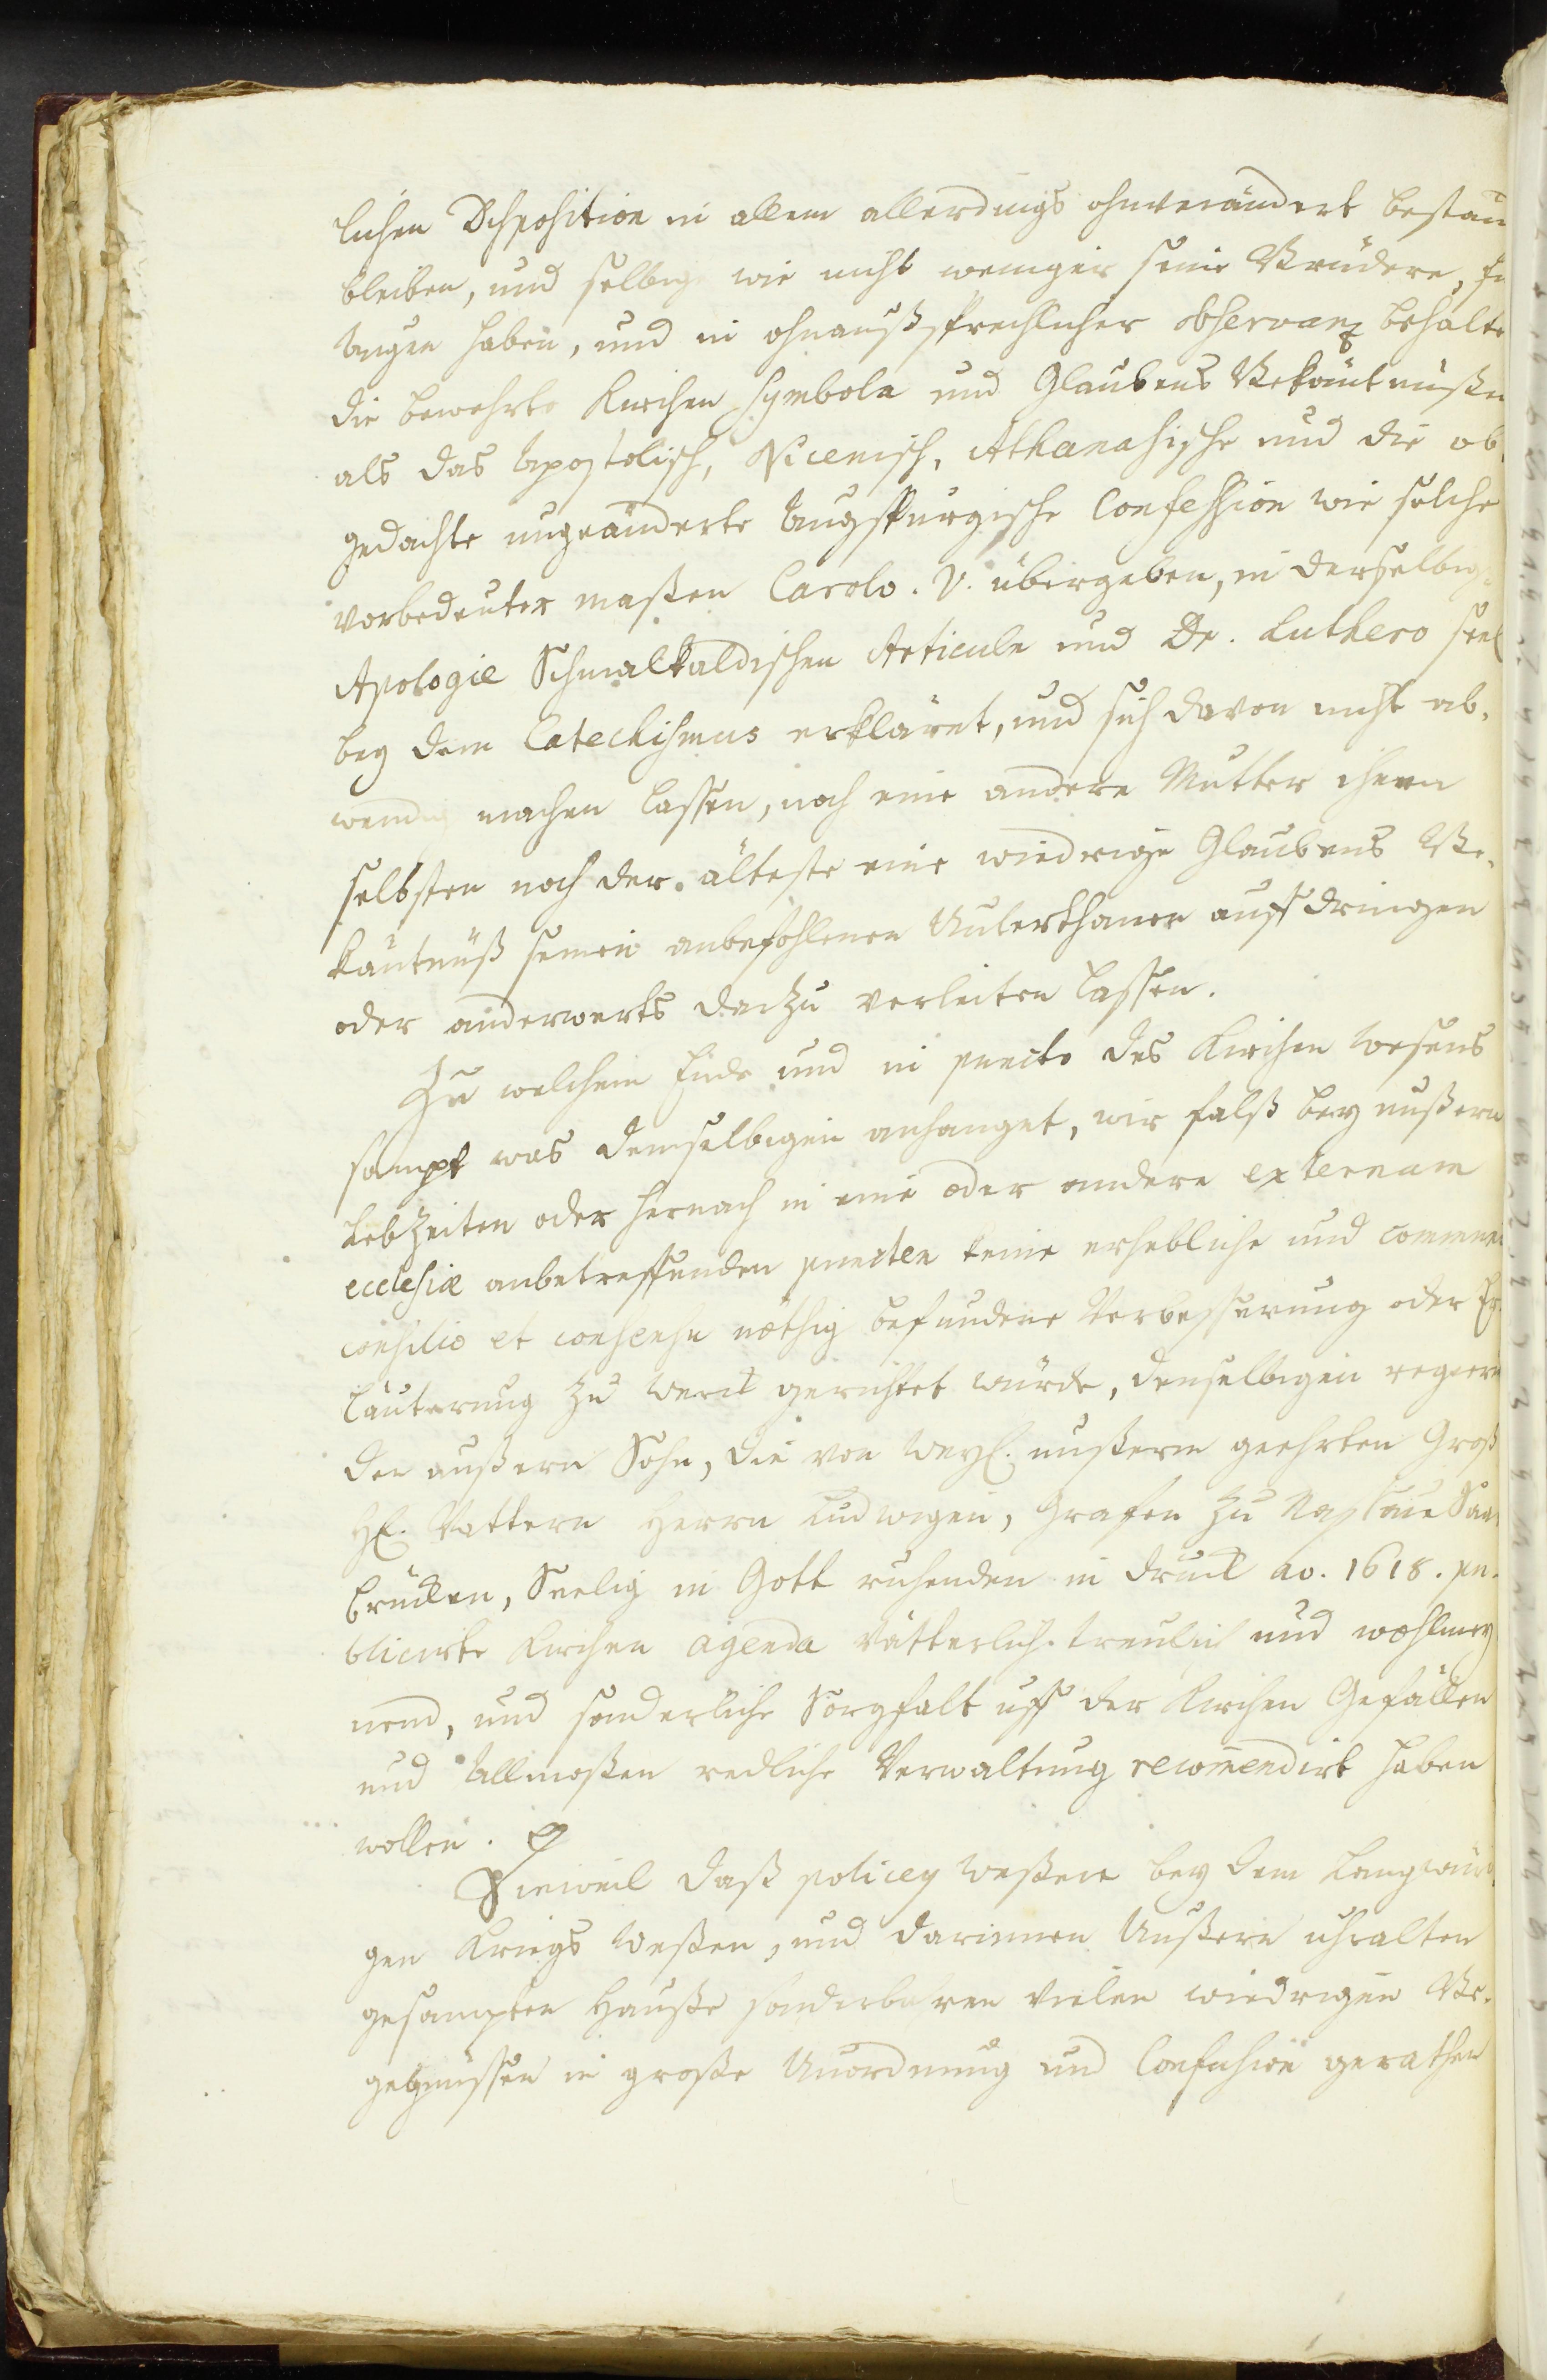 lichen Disposition in allem allerdings ohnverändert bestän
bleiben, und selbig wie nicht weniger seine Brüdere, für
Augen haben, und in ohnaußsprechlicher observanz behalte
die bewehrte Kirchen Symbola und Glaubens Bekäntnüßen
als das Apostolisch, Nicenisch, Athanasische und die ob-
gedachte ungeänderte Augspurgische Confession wie solche
vorbedeuter maßen Carolo. V. übergeben, in derselbigen
Apologie Schmalkaldischen Articuln und Dr. Luthero seel
bey dem Catechismus erkläret, und sich davon nicht ab-
wendig machen laßen, noch eine andere Mutter ihren
selbsten noch der älteste eine wiedrige Glaubens Be-
käntnüß seinen anbefohlenen Unterthanen auffdringen
oder anderwerts darzu verleiten laßen.
Zu welchem Ende und in puncto des Kirchen Wesens
sampt was demselbigen anhanget, wir falß bey unßern
Lebzeiten oder hernach in eine oder andere externam
ecclesiæ anbetreffenden puncten keine erhebliche und commu
consilio et consensu nöthig befundene Verbeßerung oder Er
läuterung zu Werck gerichtet würde, denselbigen regieren
den unßern Sohn, die von Weyl. unßerm geehrten Groß
H. Vattern Herrn Ludwigen, Grafen zu Naßau Saar
brücken, Seelig in Gott ruhenden in druck ao. 1618. pu-
blicirte Kirchen agenda vätterlich treulich und wohlmey
nend, und sonderliche Sorgfalt uff der Kirchen Gefällen
und Allmoßen redliche Verwaltung recom̄endirt haben
wollen.
Dieweil daß policey Weßen bey dem Langwüri
gen Kriegs Weßen, und darinnen Unßern uhralten
gesampten Hauße sonderbahren vielen wiedrigen Be-
gegnüssen in große Unordnung und Confusion gerathen